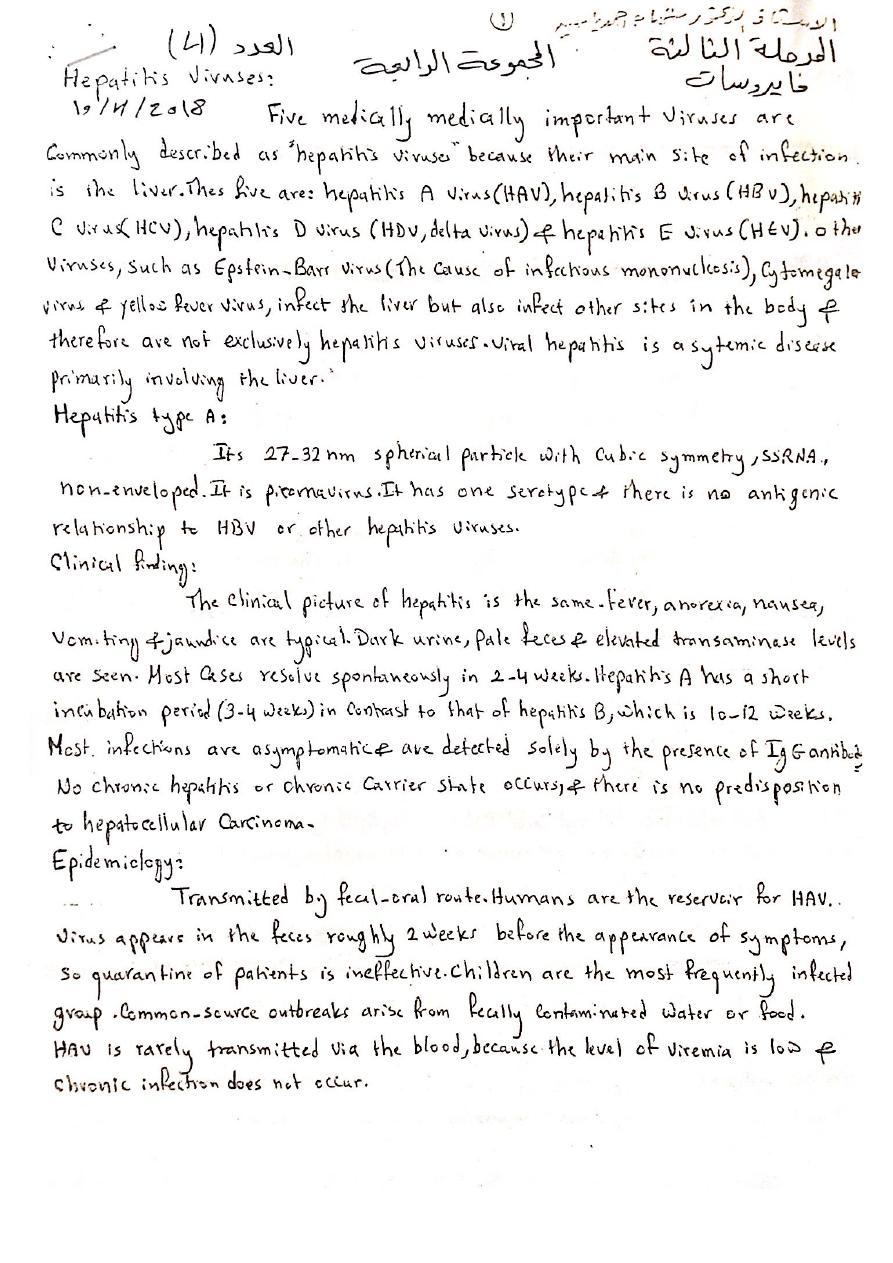 ①
الاستاذ الدكتور
العدد (4)
المرحلة الثالثة
المجموعة الرابعة
فايروسات
Hepatitis Viruses:
/4/2018
Five medically medically important viruses are
Commonly described as "hepatitis viruses" because their main site of infection
is the liver. Thes five are: hepatitis A virus (HAV), hepatitis B virus (HBV), hepatitis
C virus (HCV), hepatitis D virus (HDV, delta virus) & hepatitis E virus (HEV). other
Viruses, such as Epstein-Barr virus (The cause of infectious mononucleosis), Cytomegalo
virus & yellow fever virus, infect the liver but also infect other sites in the body &
therefore are not exclusively hepatitis viruses. Viral hepatitis is a sytemic disease
primarily involving the liver.
Hepatitis type A:
Its 27-32 nm spherical particle with Cubic symmetry, SSRNA.,
non-enveloped. It is picornavirus. It has one serotype & there is no antigenic
relationship to HBV or other hepatitis viruses.
Clinical finding:
The Clinical picture of hepatitis is the same. fever, anorexia, nausea,
Vomiting & jaundice are typical. Dark urine, pale feces & elevated transaminase levels
are seen. Most Cases resolve spontaneously in 2-4 weeks. Hepatitis A has a short
incubation period (3-4 weeks) in Contrast to that of hepatitis B, which is 10-12 weeks.
Most infections are asymptomatic & are detected Solely by the presence of IgG antibody
No chronic hepatitis or chronic Carrier state occurs, & there is no predisposition
to hepatocellular Carcinoma.
Epidemiology:
Transmitted by fecal-oral route. Humans are the reservoir for HAV..
Virus appears in the feces roughly 2 weeks before the appearance of symptoms,
So quarantine of patients is ineffective. Children are the most frequently infected
group. Common-source outbreaks arise from fecally contaminated water or food.
HAV is rarely transmitted via the blood, because the level of viremia is low &
Chronic infection does not occur.